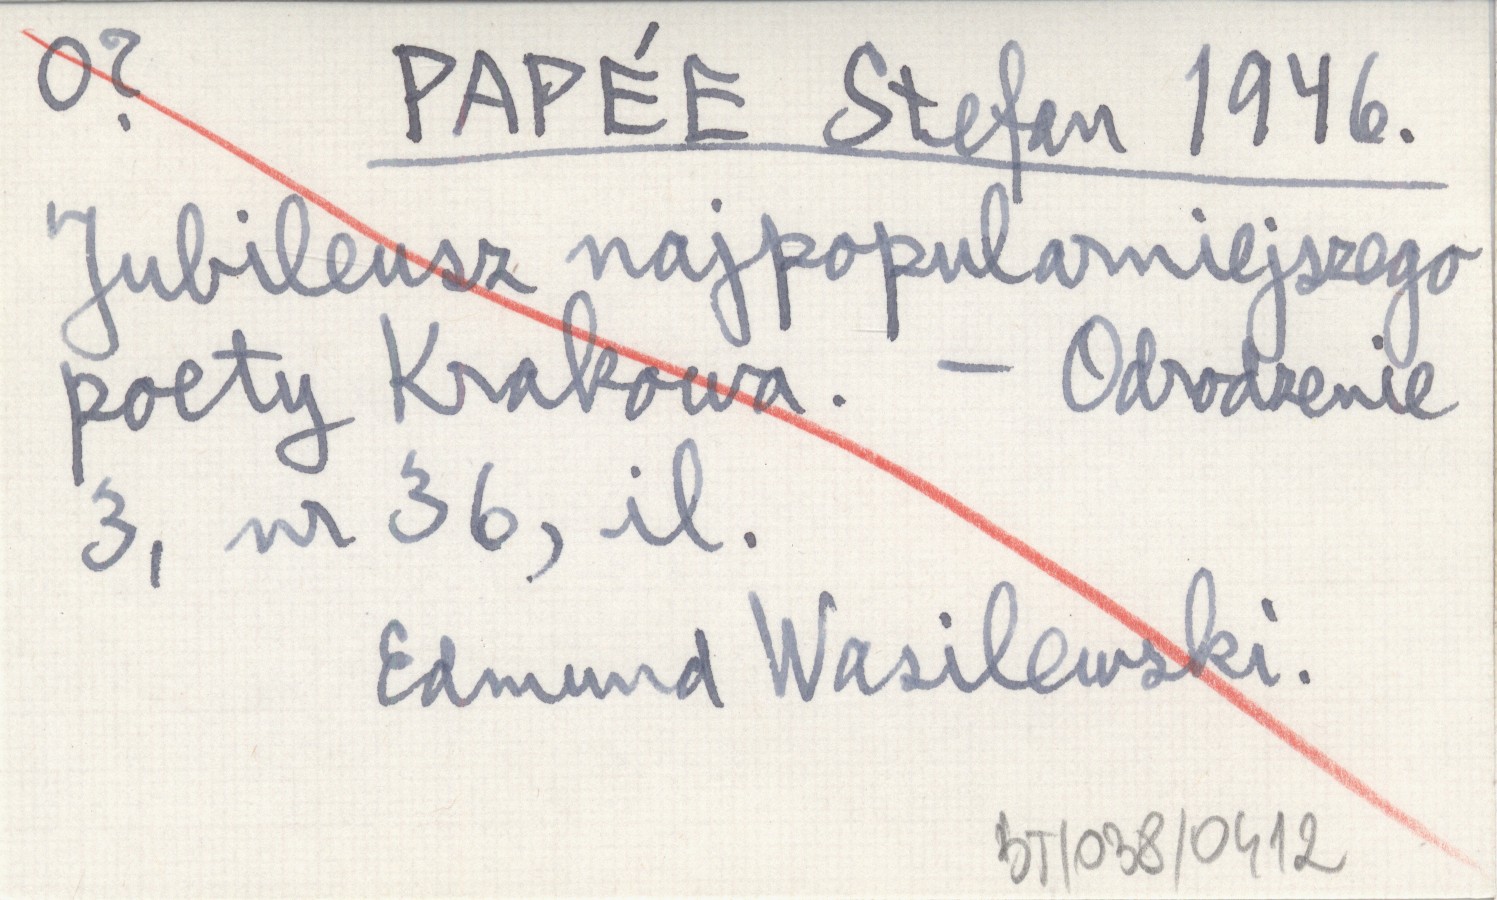 O? PAPÉE Stefan 1946.
Jubileusz najpopularniejszego
poety Krakowa. – Odrodzenie
3, nr 36, il.
Edmund Wasilewski.
BT/038/0412